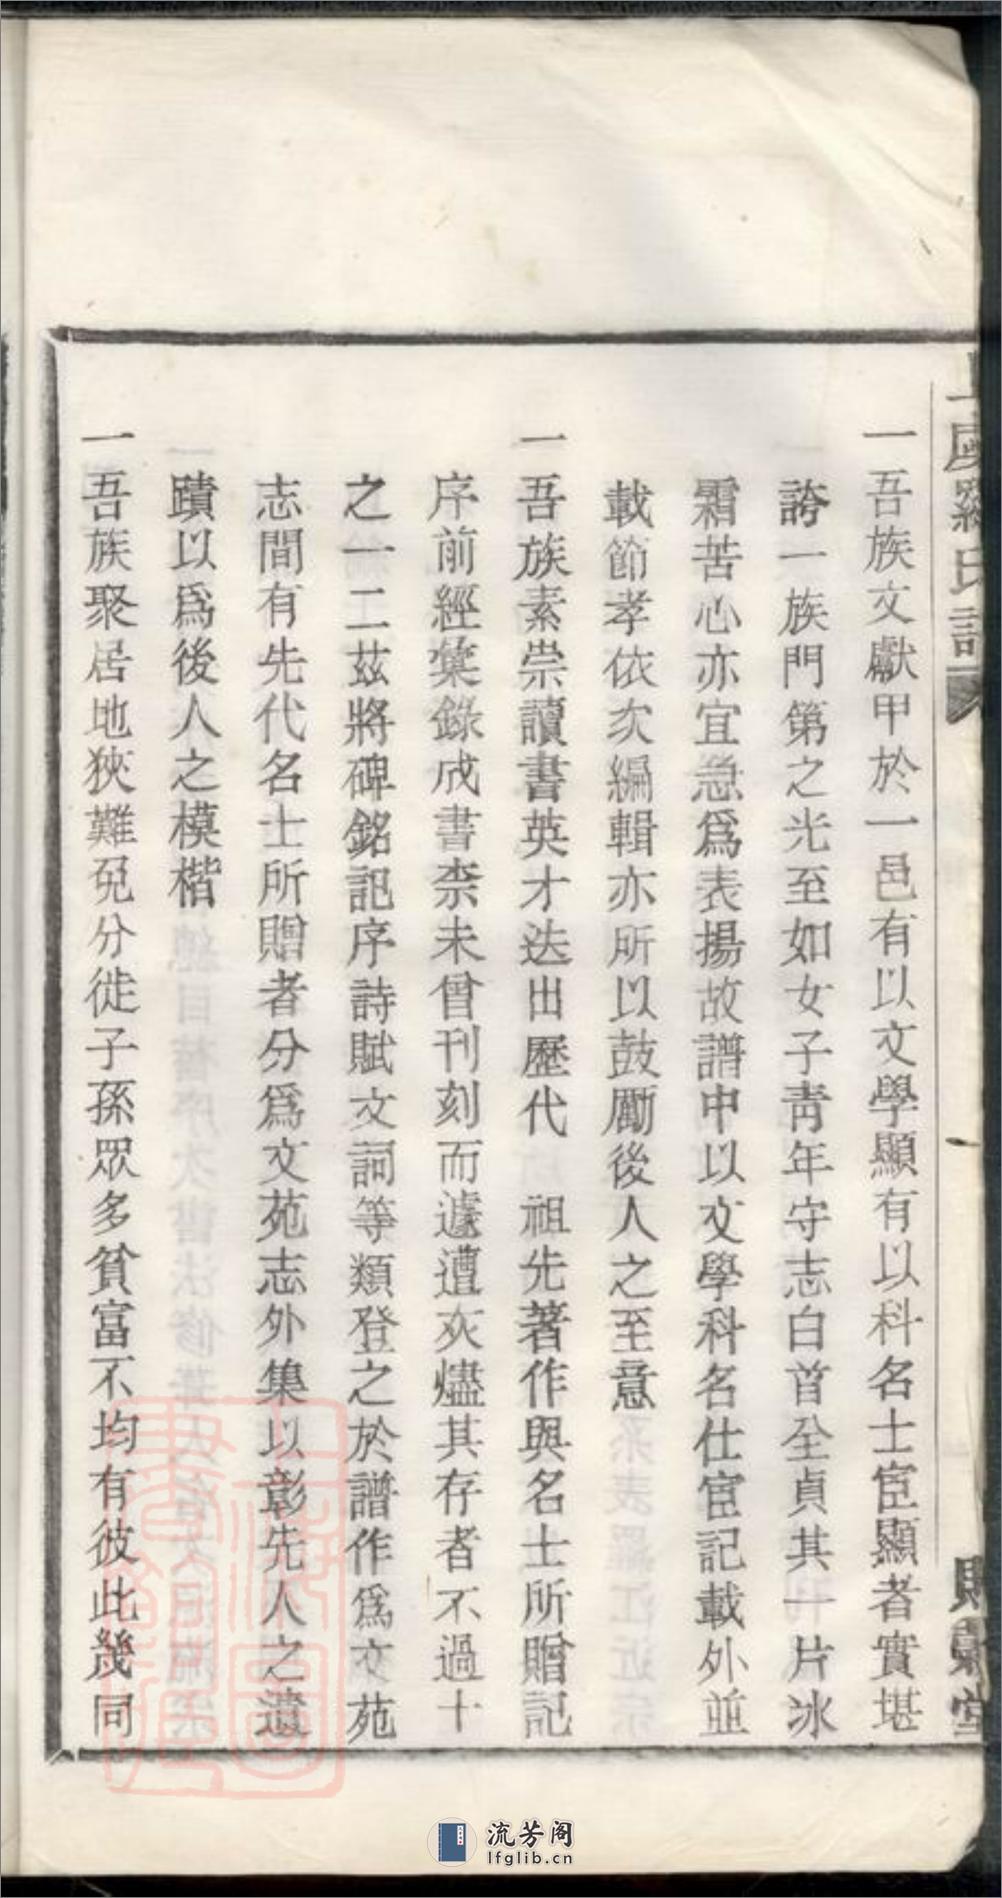 一吾族文獻甲於一邑有以文學顯有以科名士宦顯者實堪
誇一族門第之光至如女子靑年守志白首全貞其一片冰
霜苦心亦宜急爲表揚故譜中以文學科名仕宦記載外並
載節孝依次編輯亦所以鼓勵後人之至意
一吾族素崇讀書英才迭出歷代　祖先著作與名士所贈記
序前經彙錄成書柰未曾刊刻而遽遭灾燼其存者不過十
之一二茲將碑銘記序詩賦文詞等類登之於譜作爲文苑
志間有先代名士所贈者分爲文苑志外集以彰先人之遺
蹟以爲後人之模楷
一吾族聚居地狹難免分徙子孫眾多貧富不均有彼此幾同
流芳阁
lfglib.cn